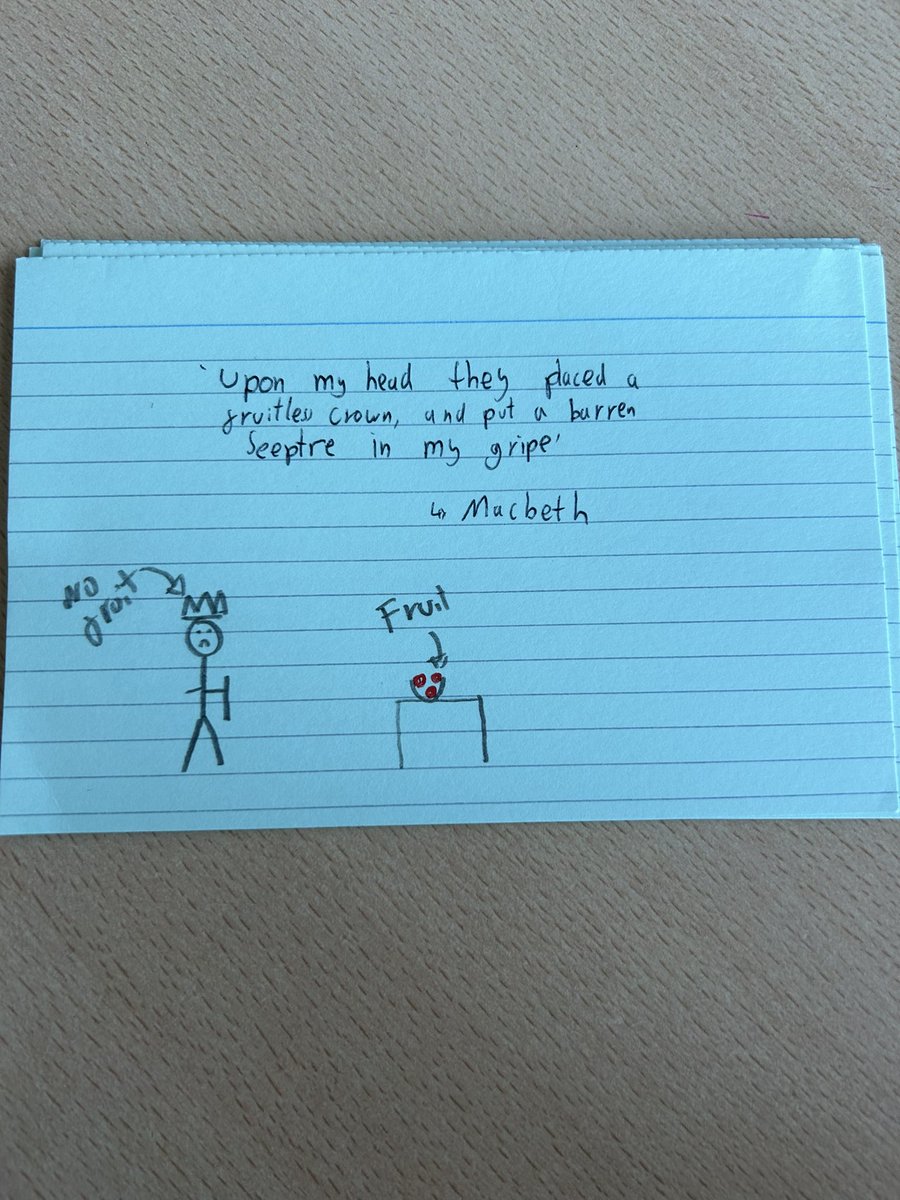 'Upon my head they placed a
fruitless crown, and put a barren
Sceptre in my gripe'
↳ Macbeth
NO
fruit
Fruit